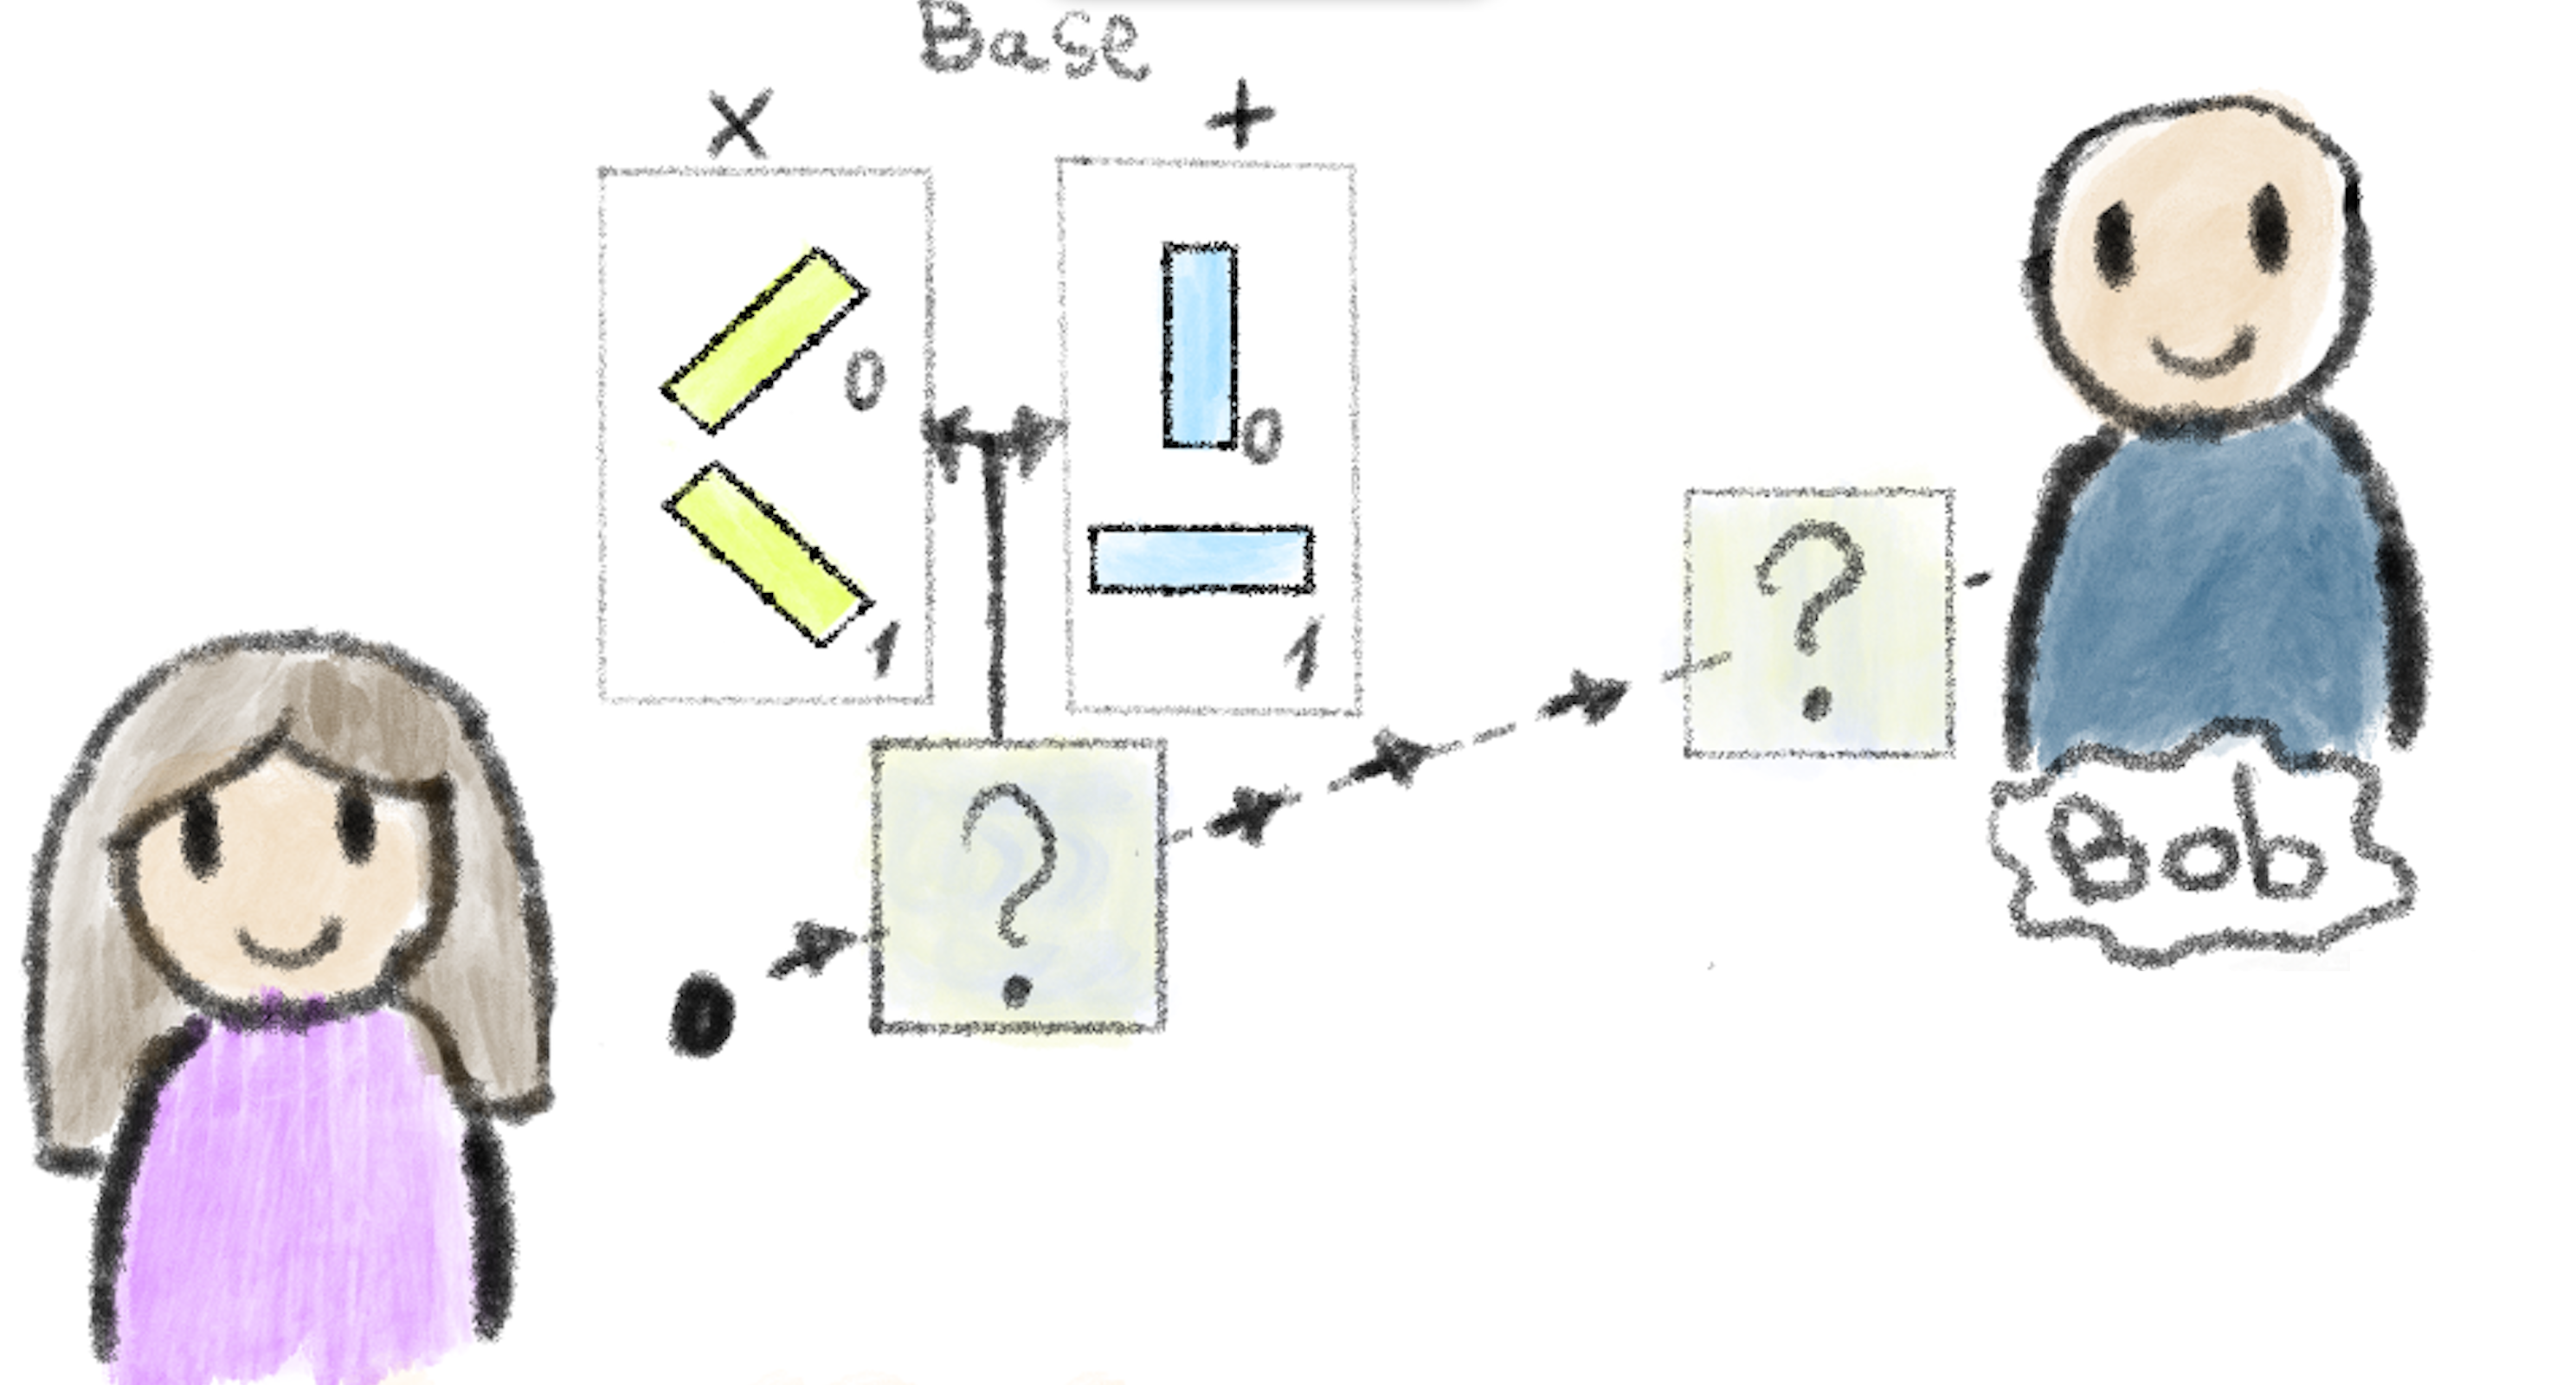 Base
× +
0
0
1
1
?
?
0
Bob